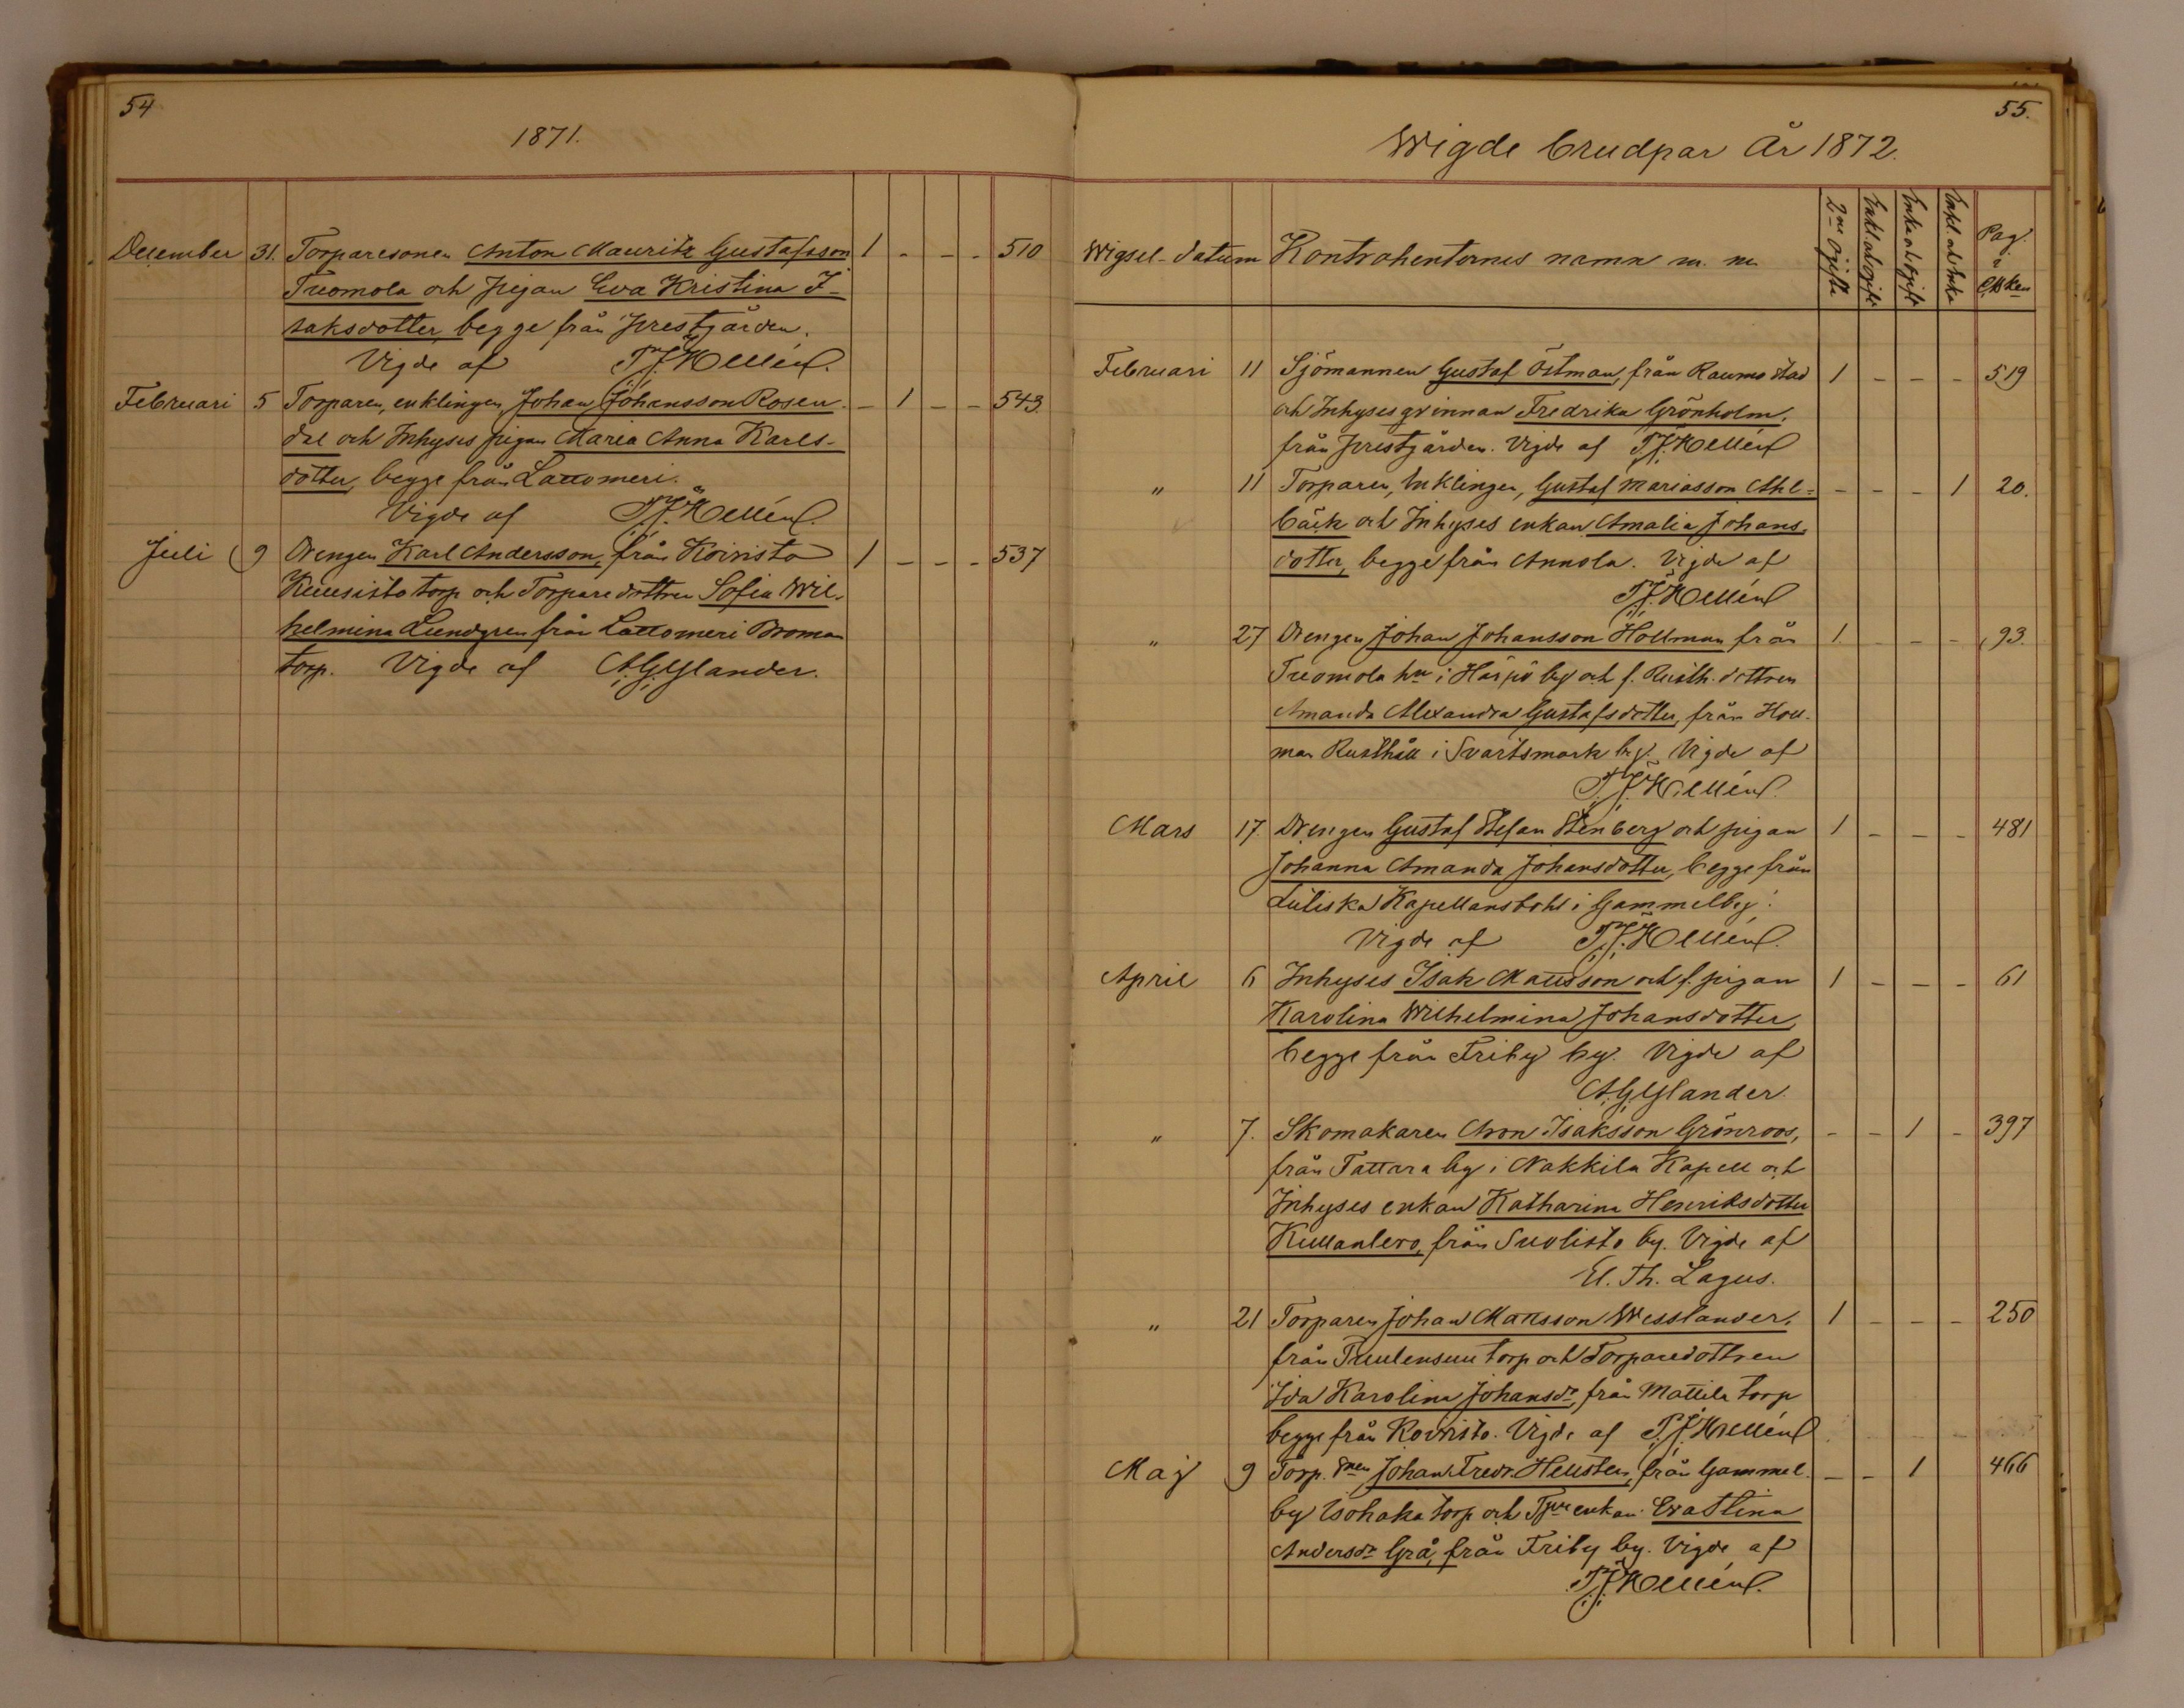 54
1871.
December 31. Torparesonen Anton Mauritz Gustafsson 1 - - - 510
Tuomola och pigan Eva Kristina I-
saksdotter, begge från Prestgården.
Vigde af T. J. Hellén.
Februari 5 Torparen, enklingen Johan Johansson Rosen- - 1 - - 543
dal och Inhyses pigan Maria Anna Karls-
dotter, begge från Lattomeri.
Vigde af T. J. Hellén.
Juli 9 Drengen Karl Andersson, från Koivisto 1 - - - 537
Kuusisto torp och Torparedottren Sofia Wil-
helmina Lundgren från Lattomeri Broman
torp. Vigde af A. G. Yslander.
55.
Wigde brudpar År 1872.
Wigsel-datum Kontrahenternes namn m. m. 2ne ogifta Enkl. o ogift Enka o ogift Enkl. o Enka Pag. i C.Bken
Februari 11 Sjömannen Gustaf Östman, från Raumo stad 1 - - - 519
och Inhysesqvinnan Fredrika Grönholm,
från Prestgården. Vigde af T. J. Hellén
" 11 Torparen, Enklingen, Gustaf Mariasson Ahl= - - - 1 20.
bäck och Inhyses enkan Amalia Johans-
dotter, begge från Annola. Vigde af
T. J. Hellén
" 27 Drengen Johan Johansson Hollman från 1. - - - 93.
Tuomola hn i Härpö by och f. Rusth. dottren
Amanda Alexandra Gustafsdotter, från Holl-
man Rusthåll i Svartsmark by. Vigde af
T. J. Hellén.
Mars 17. Drengen Gustaf Stefan Stenberg och pigan 1 - - - 481
Johanna Amanda Johansdotter, begge från
Lilliska Kapellansbohl i Gammelby.
Vigde af T. J. Hellén.
April 6 Inhyses Isak Mattsson och f. pigan 1 - - - 61
Karolina Wilhelmina Johansdotter,
begge från Friby by. Vigde af
A. G. Yslander.
" 7. Skomakaren Aron Isaksson Grönroos, - - 1 - 397
från Tattara by i Nakkila Kapell och
Inhyses enkan Katharina Henriksdotter
Kullanlevo, från Suolisto by. Vigde af
El. Th. Lagus.
" 21 Torparen Johan Mattsson Wesslander, 1 - - - 250
från Tuulensuu torp och Torparedottren
Ida Karolina Johansdr, från Mattila torp
begge från Koivisto. Vigde af T. J. Hellén
Maj 9 Torp. snen Johan Fredr. Hellsten, från Gammel- - - 1 466
by Isohaka torp och Tpre enkan Eva Stina
Andersdr Grå, från Friby by. Vigde af
T. J. Hellén.